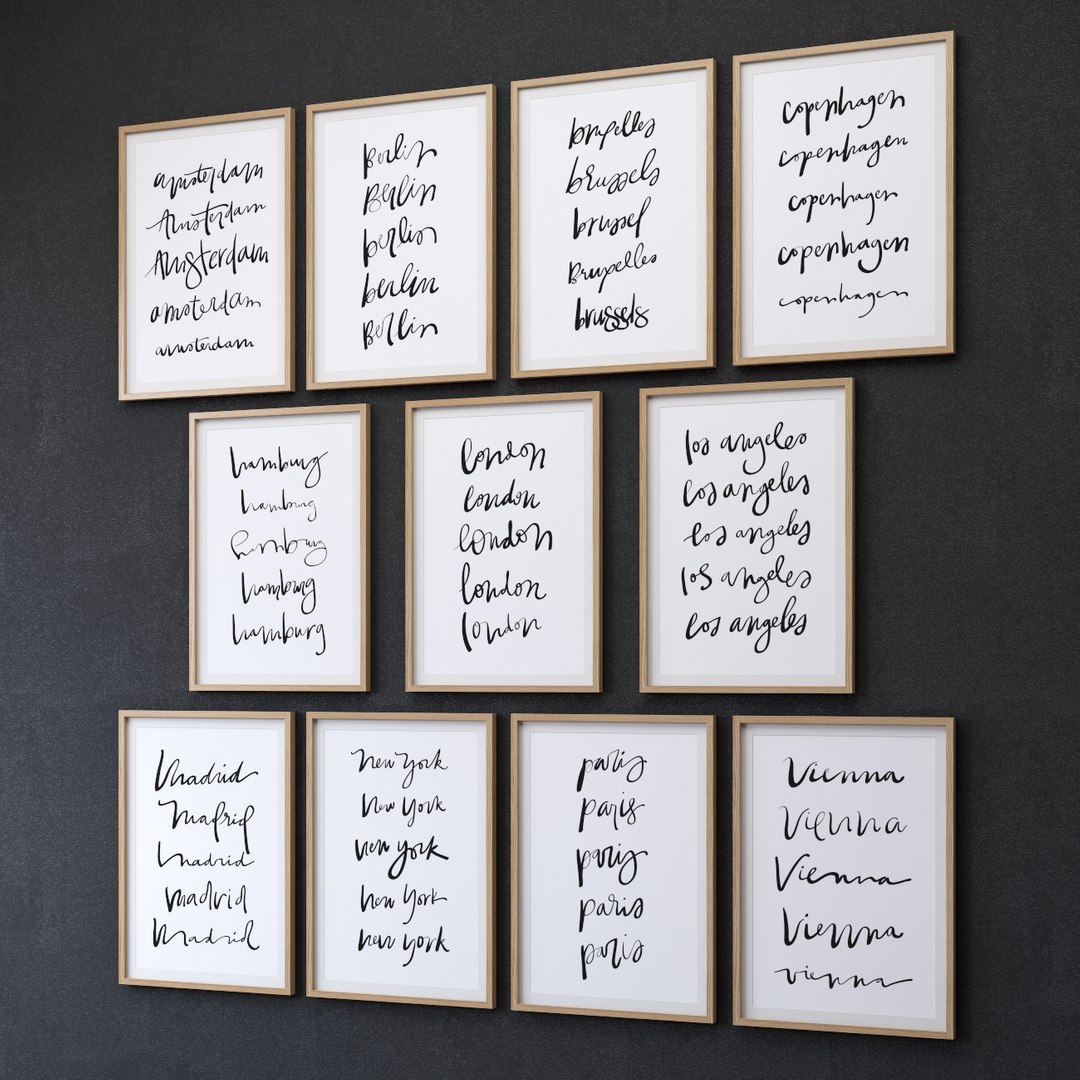 amsterdam
Amsterdam
Amsterdam
amsterdam
amsterdam
Berlin
Berlin
berlin
berlin
Berlin
bruxelles
brussels
brussel
Bruxelles
brussels
copenhagen
copenhagen
copenhagen
copenhagen
copenhagen
hamburg
hamburg
hamburg
hamburg
hamburg
london
london
london
london
london
los angeles
los angeles
los angeles
los angeles
los angeles
Madrid
Madrid
madrid
madrid
Madrid
New York
New York
new york
new York
new york
paris
paris
paris
paris
paris
Vienna
Vienna
Vienna
Vienna
vienna